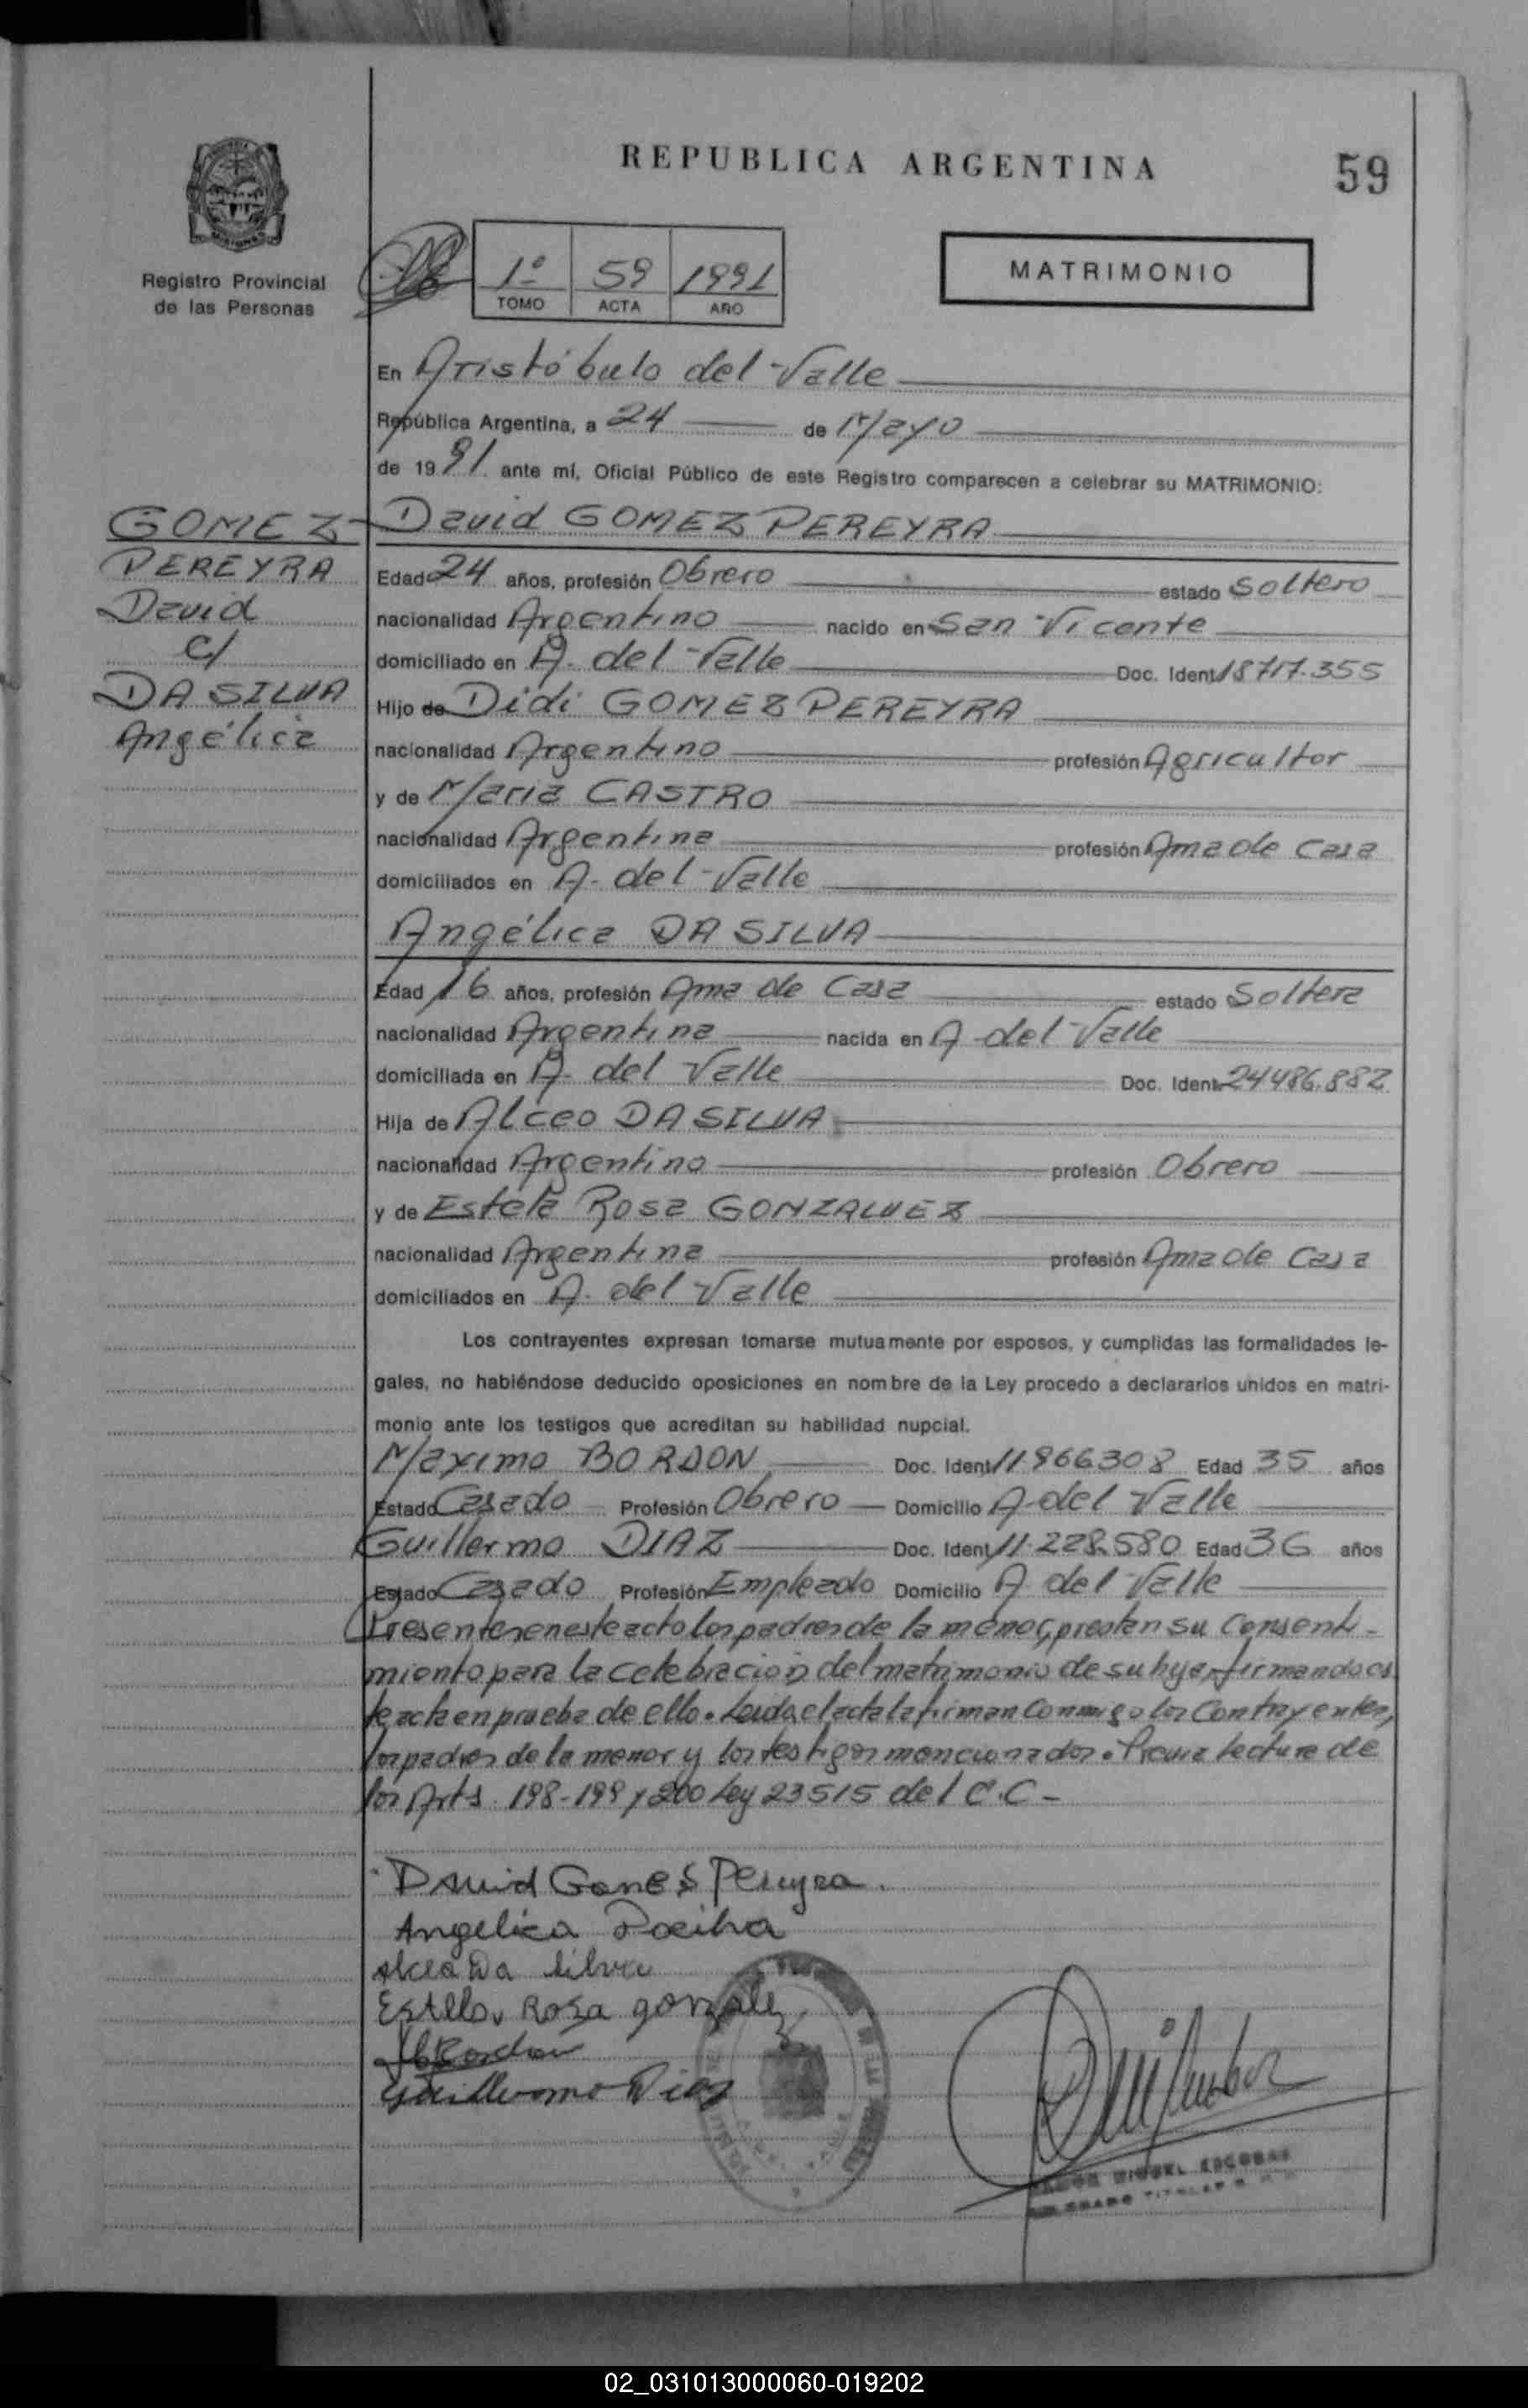 REPUBLICA ARGENTINA
59
Registro Provincial
de las Personas
1º 59 1991
TOMO ACTA AÑO
MATRIMONIO
En Aristóbulo del Valle
República Argentina, a 24 de Mayo
de 19 91 ante mí, Oficial Público de este Registro comparecen a celebrar su MATRIMONIO:
GOMEZ
PEREYRA
David
c/
DA SILVA
Angélica
David GOMEZ PEREYRA
Edad 24 años, profesión Obrero estado Soltero
nacionalidad Argentino nacido en San Vicente
domiciliado en A. del Valle Doc. Ident. 18717.355
Hijo de Didi GOMEZ PEREYRA
nacionalidad Argentino profesión Agricultor
y de Maria CASTRO
nacionalidad Argentina profesión Ama de Casa
domiciliados en A. del Valle
Angélica DA SILVA
Edad 16 años, profesión Ama de Casa estado Soltera
nacionalidad Argentina nacida en A del Valle
domiciliada en A. del Valle Doc. Ident. 24486.882
Hija de Alceo DA SILVA
nacionalidad Argentino profesión Obrero
y de Estela Rosa GONZALVEZ
nacionalidad Argentina profesión Ama de Casa
domiciliados en A. del Valle
Los contrayentes expresan tomarse mutuamente por esposos, y cumplidas las formalidades le-
gales, no habiéndose deducido oposiciones en nombre de la Ley procedo a declararlos unidos en matri-
monio ante los testigos que acreditan su habilidad nupcial.
Maximo BORDON Doc. Ident. 11.866308 Edad 35 años
Estado Casado Profesión Obrero Domicilio A. del Valle
Guillermo DIAZ Doc. Ident. 11.228.580 Edad 36 años
Estado Casado Profesión Empleado Domicilio A. del Valle
Presentes en este acto los padres de la menor, prestan su Consenti-
miento para la celebración del matrimonio de su hija, firmando es
te acta en prueba de ello. Leida el acta la firman Conmigo los Contrayentes,
los padres de la menor y los testigos mencionados. Previa lectura de
los Arts. 198-199 y 200 Ley 23515 del C.C-
David Gomes Pereyra.
Angelica Dacilva
Alceo Da Silva
Estella Rosa gonzalez
Guillermo Diaz
MIGUEL ESCOBAR
02_031013000060-019202